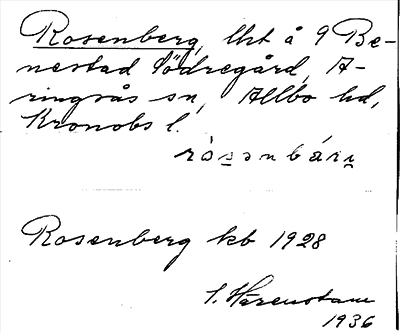 Rosenberg, lht å 9 Be-
nestad Södregård, A-
ringsås sn, Allbo hd,
Kronobs l.
Rosenberg kb 1928
S. Härenstam
1936